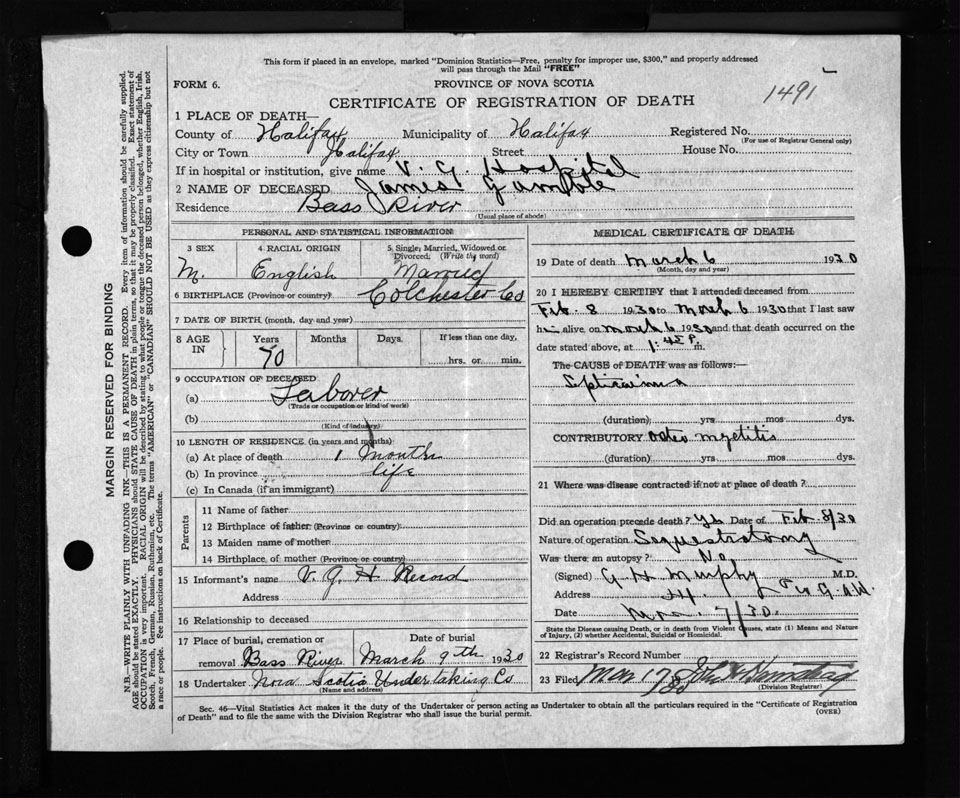 This form if placed in an envelope, marked "Dominion Statistics—Free, penalty for improper use, $300," and properly addressed
will pass through the Mail "FREE"
FORM 6. PROVINCE OF NOVA SCOTIA
CERTIFICATE OF REGISTRATION OF DEATH 1491
1 PLACE OF DEATH—
County of Halifax Municipality of Halifax Registered No.
(For use of Registrar General only)
City or Town Halifax Street House No.
If in hospital or institution, give name V. G. Hospital
2 NAME OF DECEASED James Gamble
Residence Bass River
(Usual place of abode)
PERSONAL AND STATISTICAL INFORMATION
3 SEX 4 RACIAL ORIGIN 5 Single, Married, Widowed or Divorced, (Write the word)
M. English Married
6 BIRTHPLACE (Province or country) Colchester Co
7 DATE OF BIRTH (month, day and year)
8 AGE IN Years Months Days. If less than one day,
70 hrs. or min.
9 OCCUPATION OF DECEASED
(a) Laborer
(Trade or occupation or kind of work)
(b)
(Kind of industry)
10 LENGTH OF RESIDENCE (in years and months)
(a) At place of death 1 Month
(b) In province life
(c) In Canada (if an immigrant)
Parents
11 Name of father
12 Birthplace of father (Province or country)
13 Maiden name of mother
14 Birthplace of mother (Province or country)
15 Informant's name V. G. H Record
Address
16 Relationship to deceased
17 Place of burial, cremation or Date of burial
removal Bass River March 9th 1930
18 Undertaker Nova Scotia Undertaking Co
(Name and address)
MEDICAL CERTIFICATE OF DEATH
19 Date of death March 6 1930
(Month, day and year)
20 I HEREBY CERTIFY that I attended deceased from
Feb. 8 1930 to March 6 1930 that I last saw
him alive on March 6 1930 and that death occurred on
date stated above, at 1:45 P. m.
The CAUSE OF DEATH was as follows:—
Septicaemia
(duration) yrs mos dys.
CONTRIBUTORY Osteo myelitis
(duration) yrs. mos dys.
21 Where was disease contracted if not at place of death?
Did an operation precede death? Yes Date of Feb. 8/30
Nature of operation Sequestrotomy
Was there an autopsy? No
(Signed) G. H. Murphy M.D.
Address
Date Mar. 7/30.
State the Disease causing Death, or in death from Violent Causes, state (1) Means and Nature
of Injury, (2) whether Accidental, Suicidal or Homicidal.
22 Registrar's Record Number
23 Filed Mar 17/30
(Division Registrar)
Sec. 46—Vital Statistics Act makes it the duty of the Undertaker or person acting as Undertaker to obtain all the particulars required in the "Certificate of Registration
of Death" and to file the same with the Division Registrar who shall issue the burial permit.
(OVER)
MARGIN RESERVED FOR BINDING
N.B.—WRITE PLAINLY WITH UNFADING INK—THIS IS A PERMANENT RECORD. Every item of information should be carefully supplied.
AGE should be stated EXACTLY. PHYSICIANS should STATE CAUSE OF DEATH in plain terms, so that it may be properly classified. Exact statement of
OCCUPATION is very important. RACIAL ORIGIN will be described by stating to what people or tongue the deceased person belonged, whether English, Irish,
Scotch, French, German, Russian, Ruthenian, etc. The terms "AMERICAN" or "CANADIAN" SHOULD NOT BE USED as they express citizenship but not
a race or people. See instructions on back of Certificate.